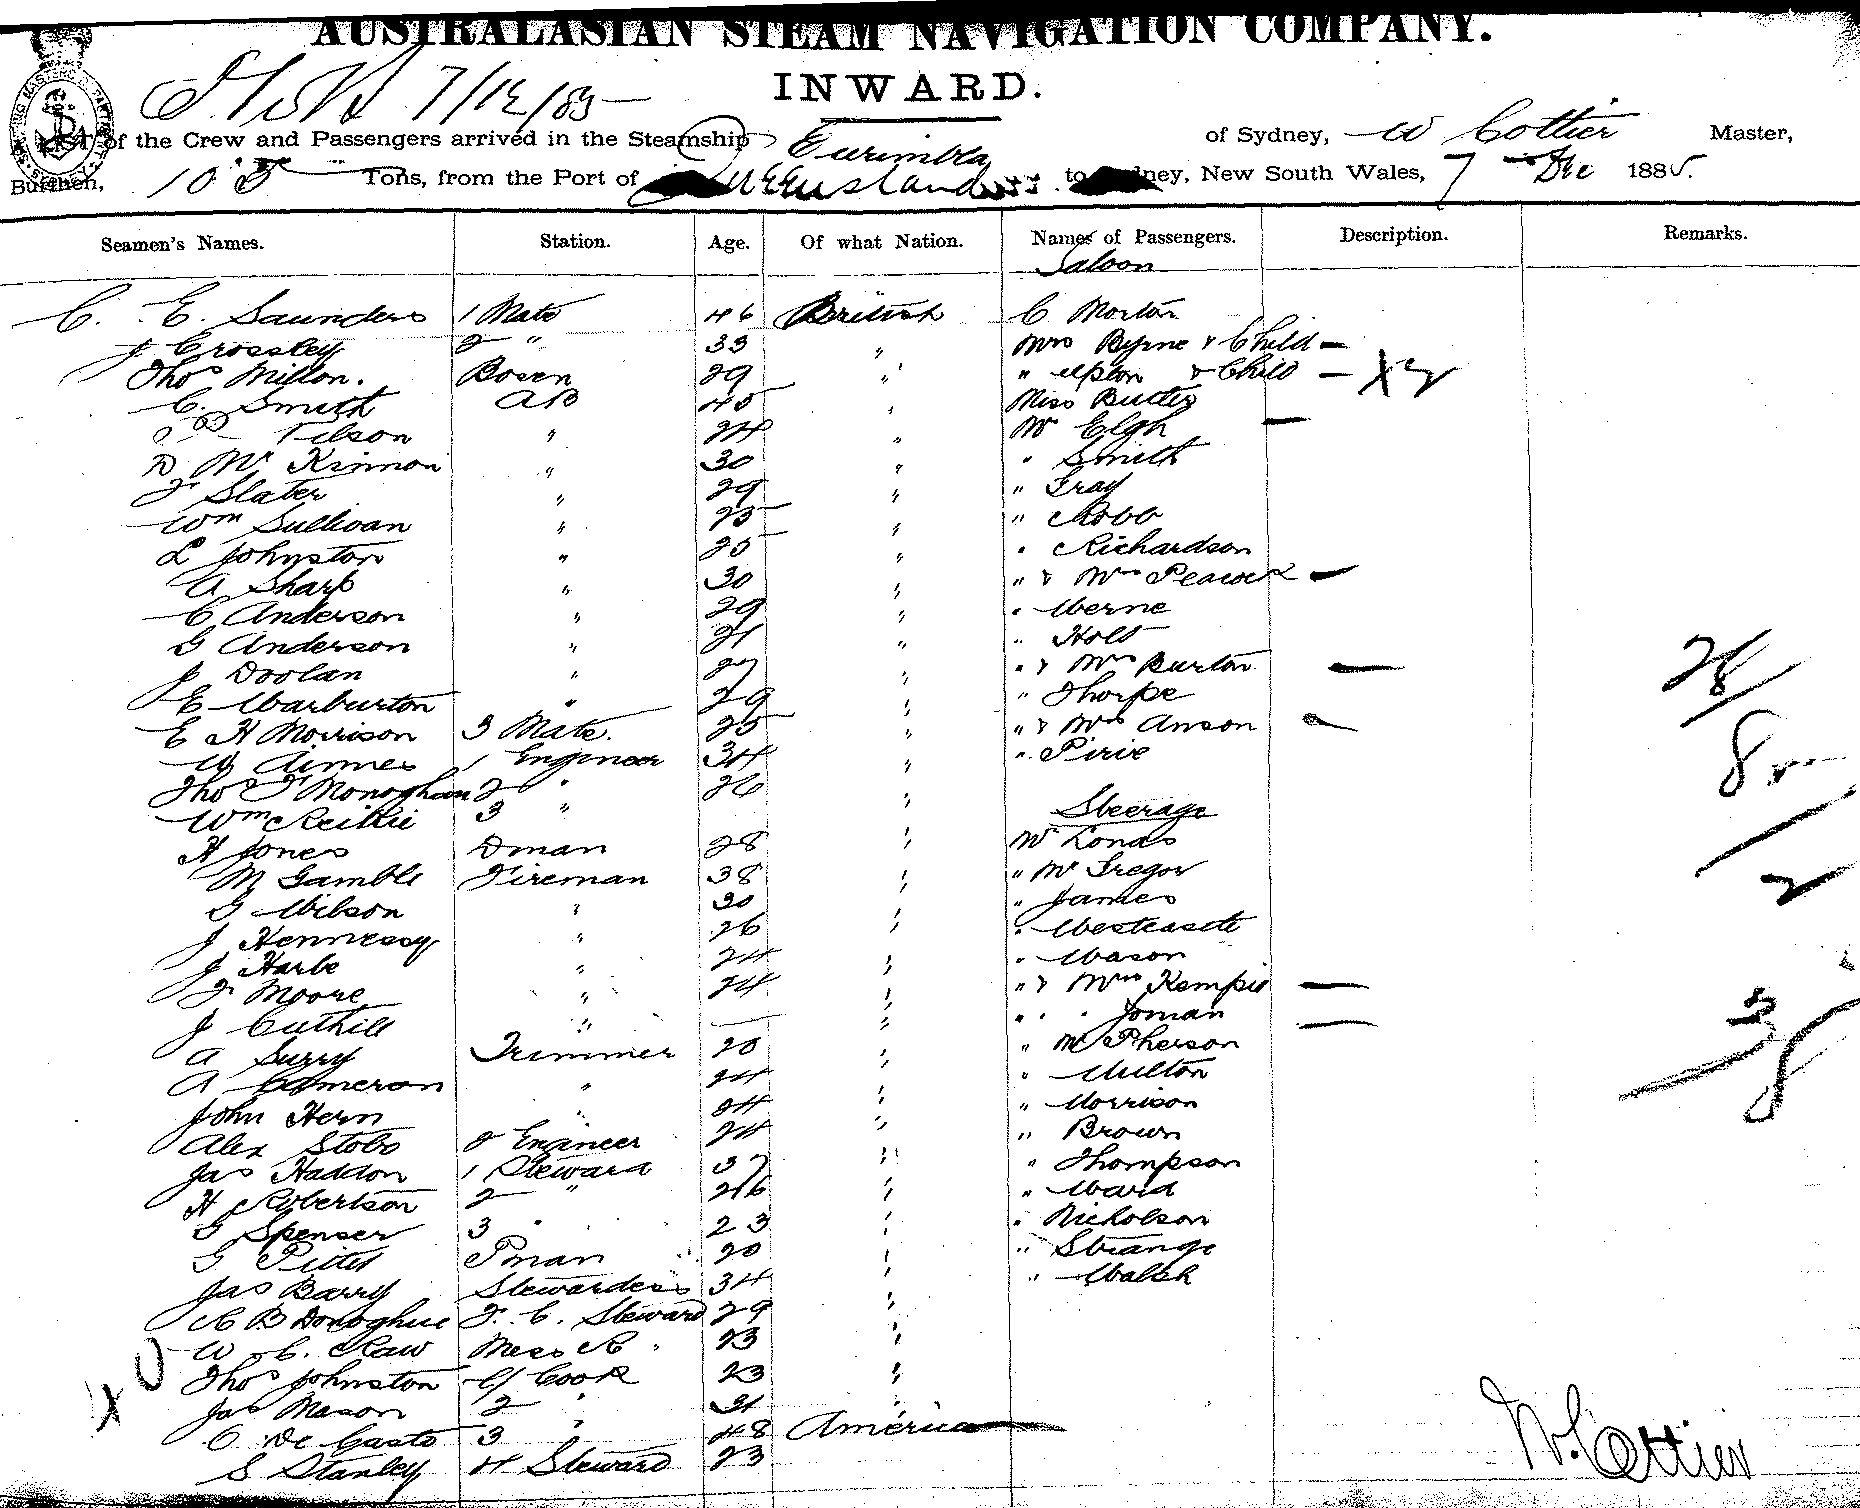 AUSTRALASIAN STEAM NAVIGATION COMPANY.
INWARD.
7/12/85
LIST of the Crew and Passengers arrived in the Steamship Eurimbla of Sydney, W Cottier Master,
Burthen, 105 Tons, from the Port of Queensland to Sydney, New South Wales, 7 Dec 1885.
Seamen's Names. Station. Age. Of what Nation. Names of Passengers. Description. Remarks.
Saloon
C. E. Saunders 1 Mate 46 British C Morton
J Crossley 2 " 33 " Mrs Byrne & Child —
Thos Millon. Bosen 29 " " Upton & Child — X2
C. Smith AB 45 " Miss Butler
Tilson " 24 " Mr Elgh —
D McKinnon " 30 " " Smith
J Slater " 29 " " Gray
Wm Sullivan " 25 " " Robb
L Johnston " 25 " " Richardson
A Sharp " 30 " " & Mrs Peacock —
C Anderson " 29 " " Werne
G Anderson " 21 " " Holt
J Doolan " 27 " " & Mrs Burton —
E Warburton " 29 " " Thorpe
E H Morrison 3 Mate. 25 " " & Mrs Anson —
W Aimes 1 Engineer 34 " " Pirie
Thos F Monoghan 2 " 26 "
Wm Reikie 3 " Steerage
H Jones Dman 28 " Mr Londs
M Gamble Fireman 38 " " McGregor
G Wilson " 30 " " James
J Hennessy " 26 " "
J Harbe " 24 " " Wason
J Moore " 24 " " & Mrs Kempie —
J Cuthill " — " " " Joman —
A Surry Trimmer 20 " " McPherson
A Cameron " 24 " " Milton
John Hern " 24 " " Morrison
Alex Stobo 2 Engineer 24 " " Brown
Jas Haddon 1 Steward 37 " " Thompson
H Robertson 2 " 26 " " Ward
G Spenser 3 " 23 " " Nicholson
G Pitts Pman 20 " " Strange
Jas Barry Stewardess 34 " " Walsh
B Donoghue F. C. Steward 29 "
W. C. Raw Mess R " 23 "
Thos Johnston C/ Cook 23 "
Jas Mason 2 " 21 "
C De Casto 3 " 48 America
S Stanley 4 Steward 23
28/
8
2
3
8
W. Cottier